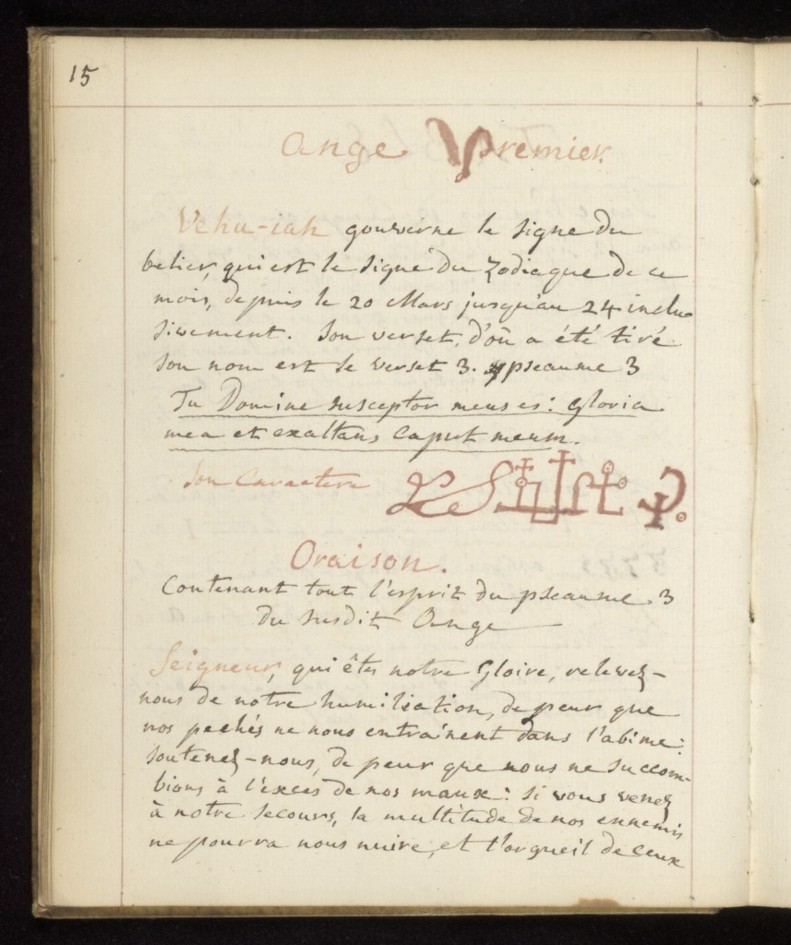 15
Ange Premier
Vehu-iah gouverne le signe du
belier, qui est le signe du Zodiaque de ce
mois, depuis le 20 Mars jusqu'au 24 inclu
sivement. Son verset, d'où a été tiré
son nom est le verset 3. pseaume 3
Tu Domine susceptor meus es: Gloria
mea et exaltans caput meum.
Son Caractere
Oraison.
Contenant tout l'esprit du pseaume 3
du susdit Ange
Seigneur, qui êtes notre Gloire, relevez-
nous de notre humiliation, de peur que
nos pechés ne nous entraînent dans l'abime:
soutenez-nous, de peur que nous ne succom-
bions à l'excès de nos maux: si vous venez
à notre secours, la multitude de nos ennemis
ne pourra nous nuire, et l'orgueil de ceux